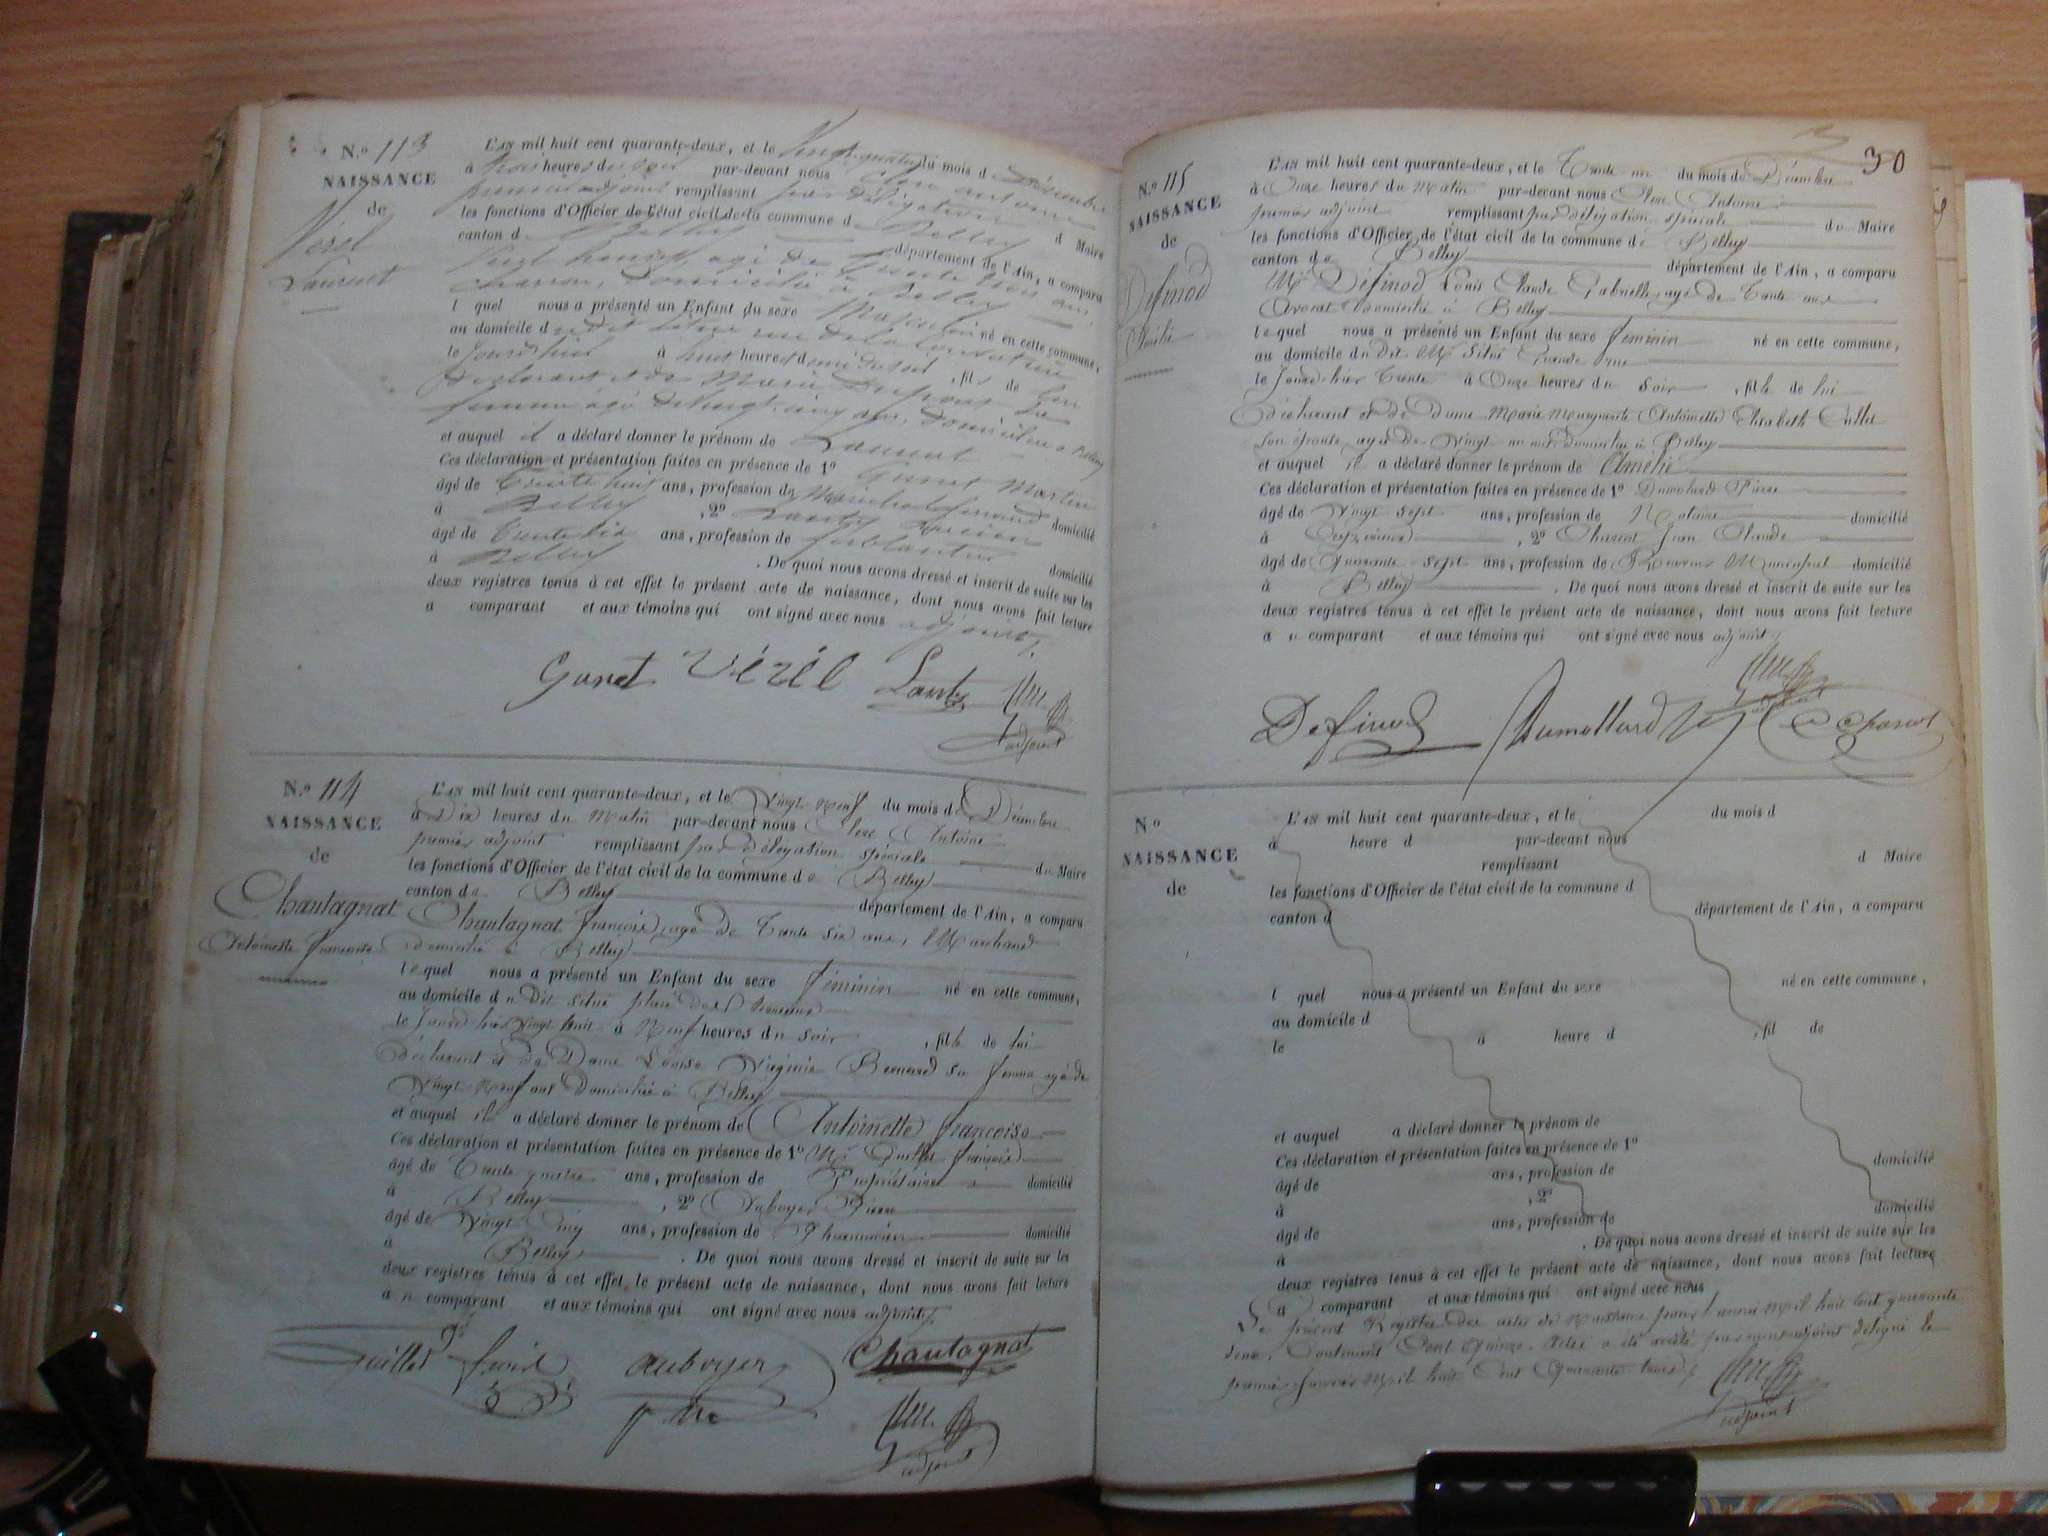 N.º 113
NAISSANCE
de
Vézél
Laurent
L'AN mil huit cent quarante-deux, et le Vingt quatre du mois de Décembre
à trois heures du soir par-devant nous Antoine
premier adjoint remplissant par délégation
les fonctions d'Officier de l'état civil de la commune d Belley d Maire
canton d Belley département de l'Ain, a comparu
Vézel agé de trente trois ans,
domicilié à Belley
l quel nous a présenté un Enfant du sexe Masculin né en cette commune,
au domicile d
le jourd'hui à huit heures du soir, fils de lui
déclarant et de Marie Dupont sa
femme agé de vingt cinq ans, domiciliée à Belley
et auquel il a déclaré donner le prénom de Laurent
Ces déclaration et présentation faites en présence de 1º Martin
âgé de Trente huit ans, profession de Maréchal ferrand domicilié
à Belley, 2º
âgé de Trente six ans, profession de ferblantier domicilié
à Belley. De quoi nous avons dressé et inscrit de suite sur les
deux registres tenus à cet effet le présent acte de naissance, dont nous avons fait lecture
a comparant et aux témoins qui ont signé avec nous adjoint
Vézél
adjoint
N.º 114
NAISSANCE
de
Chautagnat
Antoinette françoise
L'AN mil huit cent quarante-deux, et le Vingt neuf du mois de Décembre
à Dix heures du Matin par-devant nous Antoine
premier adjoint remplissant par délégation spéciale du Maire
les fonctions d'Officier de l'état civil de la commune de Belley
canton de Belley département de l'Ain, a comparu
Chautagnat françois, agé de Trente six ans, Marchand
domicilié à Belley
lequel nous a présenté un Enfant du sexe féminin né en cette commune,
au domicile du dit situé place des Terreaux
le Jourd'hier Vingt huit à Neuf heures du soir, fille de lui
déclarant et de Dame Louise Virginie sa femme agé de
Vingt neuf ans domiciliée à Belley
et auquel il a déclaré donner le prénom de Antoinette françoise
Ces déclaration et présentation faites en présence de 1º Mr Guillot françois
âgé de Trente quatre ans, profession de Propriétaire domicilié
à Belley, 2º Auboyer Pierre
âgé de Vingt cinq ans, profession de Pharmacien domicilié
à Belley. De quoi nous avons dressé et inscrit de suite sur les
deux registres tenus à cet effet, le présent acte de naissance, dont nous avons fait lecture
a u comparant et aux témoins qui ont signé avec nous adjoint
auboyer Chautagnat
adjoint
30
N.º 115
NAISSANCE
de
Définod
Amélie
L'AN mil huit cent quarante-deux, et le Trente un du mois de Décembre
à Onze heures du Matin par-devant nous Antoine
premier adjoint remplissant par délégation spéciale du Maire
les fonctions d'Officier de l'état civil de la commune de Belley
canton de Belley département de l'Ain, a comparu
Mr Définod Louis Claude Gabrielle, agé de Trente ans
Avocat domicilié à Belley
lequel nous a présenté un Enfant du sexe féminin né en cette commune,
au domicile du dit Mr situé Grande rue
le Jourd'hier Trente à Onze heures du soir, fille de lui
déclarant et de Dame Marie Marguerite Antoinette Elisabeth Cullet
son épouse, agée de Vingt un ans domiciliée à Belley
et auquel il a déclaré donner le prénom de Amélie
Ces déclaration et présentation faites en présence de 1º Dumolard Pierre
âgé de Vingt sept ans, profession de Notaire domicilié
à, 2º Jean Claude
âgé de Quarante sept ans, profession de Receveur Municipal domicilié
à Belley. De quoi nous avons dressé et inscrit de suite sur les
deux registres tenus à cet effet le présent acte de naissance, dont nous avons fait lecture
a u comparant et aux témoins qui ont signé avec nous adjoint
Définod Dumollard
Nº
NAISSANCE
de
L'AN mil huit cent quarante-deux, et le du mois d
à heure d par-devant nous
remplissant d Maire
les fonctions d'Officier de l'état civil de la commune d
canton d département de l'Ain, a comparu
l quel nous a présenté un Enfant du sexe né en cette commune,
au domicile d
le à heure d, fil de
et auquel a déclaré donner le prénom de
Ces déclaration et présentation faites en présence de 1º
âgé de ans, profession de domicilié
à, 2º
âgé de ans, profession de domicilié
à. De quoi nous avons dressé et inscrit de suite sur les
deux registres tenus à cet effet le présent acte de naissance, dont nous avons fait lecture
a comparant et aux témoins qui ont signé avec nous
Le présent Registre des actes de Naissance pour l'année Mil huit cent quarante
deux, Contenant Cent quinze Actes a été arrêté par nous adjoint délégué le
premier Janvier Mil huit Cent Quarante trois
adjoint